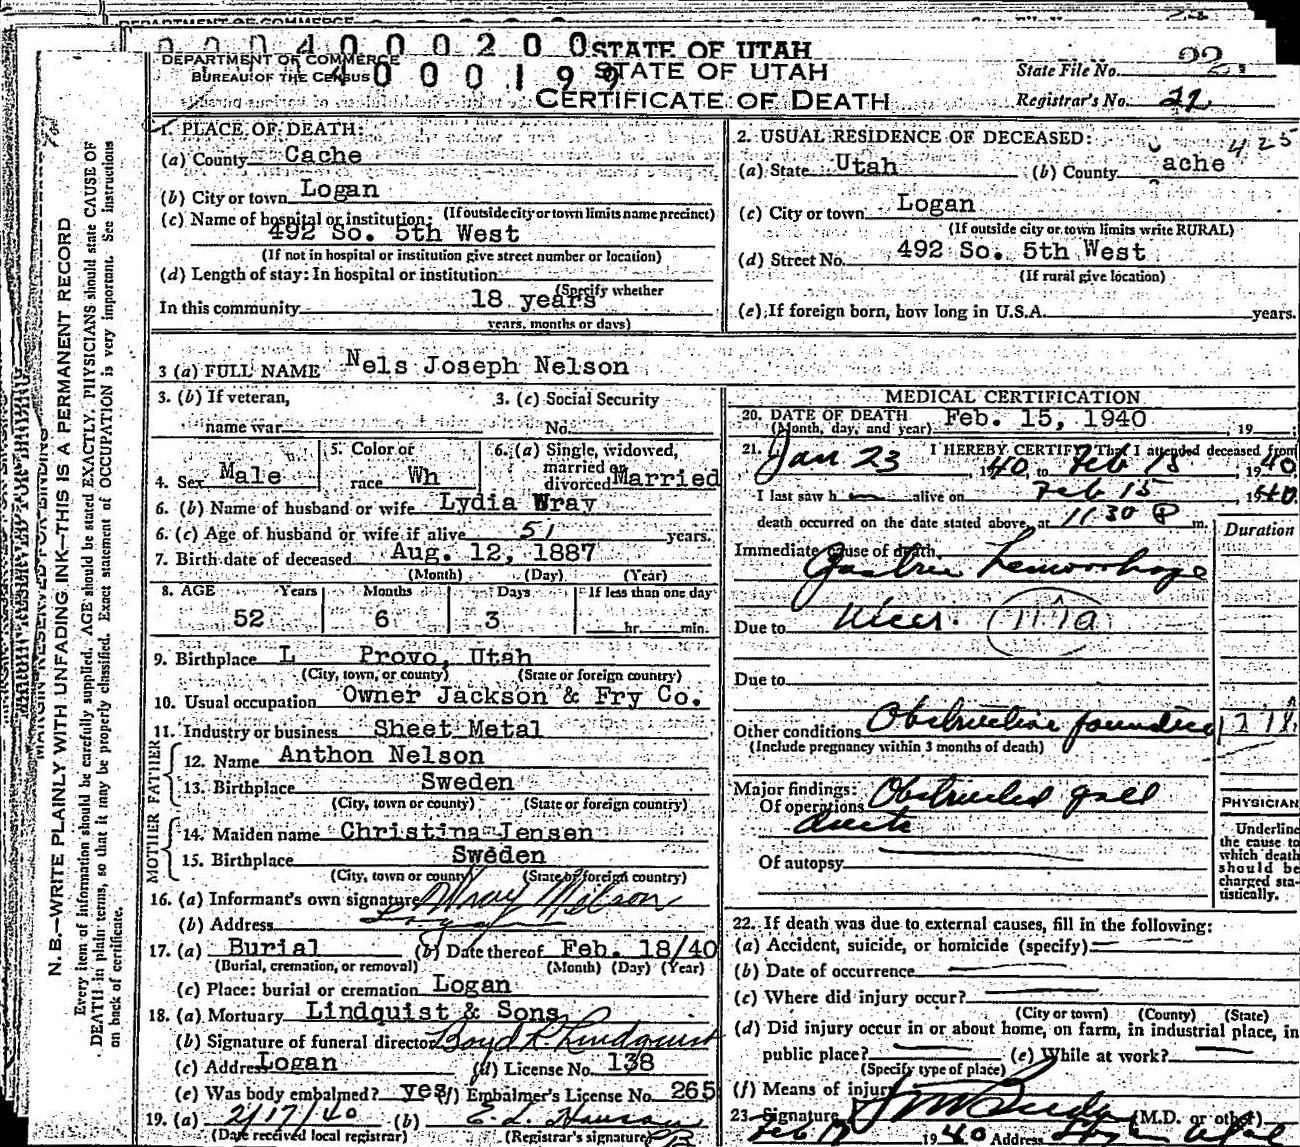 DEPARTMENT OF COMMERCE
0004000200 STATE OF UTAH
DEPARTMENT OF COMMERCE
BUREAU OF THE CENSUS
4000199 STATE OF UTAH
CERTIFICATE OF DEATH
State File No. 22
Registrar's No. 22
1. PLACE OF DEATH:
(a) County Cache
(b) City or town Logan
(If outside city or town limits name precinct)
(c) Name of hospital or institution:
492 So. 5th West
(If not in hospital or institution give street number or location)
(d) Length of stay: In hospital or institution
(Specify whether
In this community 18 years
years, months or days)
2. USUAL RESIDENCE OF DECEASED: 425
(a) State Utah (b) County Cache
(c) City or town Logan
(If outside city or town limits write RURAL)
(d) Street No. 492 So. 5th West
(If rural give location)
(e) If foreign born, how long in U.S.A. years.
3 (a) FULL NAME Nels Joseph Nelson
3. (b) If veteran,
name war
3. (c) Social Security
No.
4. Sex Male
5. Color or
race Wh
6. (a) Single, widowed,
married or
divorced Married
6. (b) Name of husband or wife Lydia Wray
6. (c) Age of husband or wife if alive 51 years.
7. Birth date of deceased Aug. 12, 1887
(Month) (Day) (Year)
8. AGE Years Months Days If less than one day
52 6 3 hr. min.
9. Birthplace L Provo, Utah
(City, town, or county) (State or foreign country)
10. Usual occupation Owner Jackson & Fry Co.
11. Industry or business Sheet Metal
FATHER
12. Name Anthon Nelson
13. Birthplace Sweden
(City, town or county) (State or foreign country)
MOTHER
14. Maiden name Christina Jensen
15. Birthplace Sweden
(City, town or county) (State or foreign country)
16. (a) Informant's own signature Wray Nelson
(b) Address
17. (a) Burial (b) Date thereof Feb. 18/40
(Burial, cremation, or removal) (Month) (Day) (Year)
(c) Place: burial or cremation Logan
18. (a) Mortuary Lindquist & Sons
(b) Signature of funeral director Boyd R Lindquist
(c) Address Logan (d) License No. 138
(e) Was body embalmed? yes (f) Embalmer's License No. 265
19. (a) 2/17/40 (b) E. L. Hansen
(Date received local registrar) (Registrar's signature)
MEDICAL CERTIFICATION
20. DATE OF DEATH Feb. 15, 1940
(Month, day, and year) , 19 ;
21. I HEREBY CERTIFY That I attended deceased from
Jan 23 1940, to Feb 15 1940
I last saw him alive on Feb 15, 1940.
death occurred on the date stated above, at 11 30 P m.
Duration
Immediate cause of death
Gastric hemorrhage
Due to Ulcer. 117a
Due to
Other conditions Obstructive jaundice 127b
(Include pregnancy within 3 months of death)
Major findings:
Of operations Obstructed gall
ducts
Of autopsy
PHYSICIAN
Underline
the cause to
which death
should be
charged sta-
tistically.
22. If death was due to external causes, fill in the following:
(a) Accident, suicide, or homicide (specify)
(b) Date of occurrence
(c) Where did injury occur?
(City or town) (County) (State)
(d) Did injury occur in or about home, on farm, in industrial place, in
public place? (e) While at work?
(Specify type of place)
(f) Means of injury
23. Signature (M.D. or other)
Feb 17 1940 Address Logan Utah
MARGIN RESERVED FOR BINDING
N. B.—WRITE PLAINLY WITH UNFADING INK—THIS IS A PERMANENT RECORD
Every item of information should be carefully supplied. AGE should be stated EXACTLY. PHYSICIANS should state CAUSE OF
DEATH in plain terms, so that it may be properly classified. Exact statement of OCCUPATION is very important. See instructions
on back of certificate.